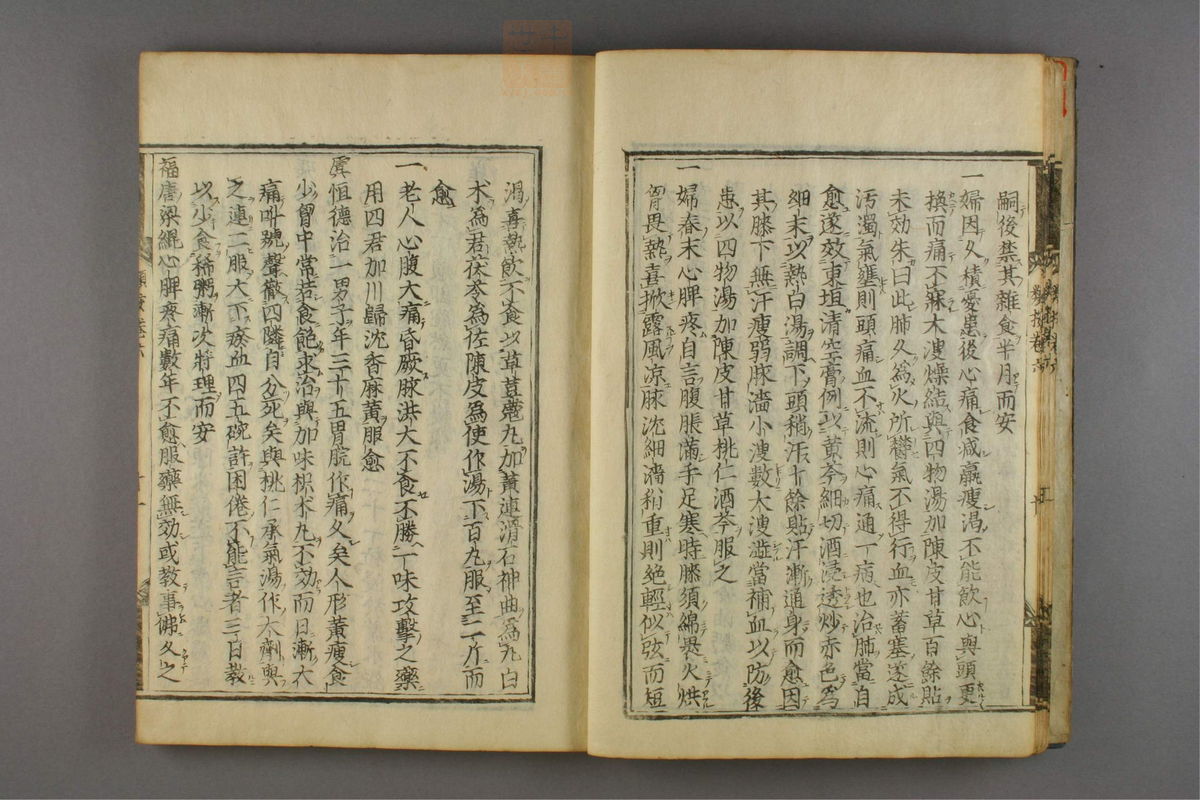 嗣後禁其雜食半月而安
一婦因久積憂患後心痛食减羸瘦渇不能飲心與頭更
換而痛不寐大溲燥結與四物湯加陳皮甘草百餘貼
未効朱曰此肺久為火所欝氣不得行血亦蓄塞遂成
汚濁氣壅則頭痛血不流則心痛通一病也治肺當自
愈遂效東垣清空膏例以黄芩細切酒浸透炒赤色為
細末以熱白湯調下頭稍汗十餘貼汗漸通身而愈因
其膝下無汗瘦弱脉濇小溲數大溲澁當補血以防後
患以四物湯加陳皮甘草桃仁酒芩服之
一婦春末心脾疼自言腹脹滿手足寒時膝須綿裹火烘
胷畏熱喜掀露風凉脉沈細濇稍重則絶輕似弦而短
渇喜熱飲不食以草荳蔲丸加黄連滑石神曲為丸白
术為君茯苓為佐陳皮為使作湯下百丸服至二斤而
愈
一老人心腹大痛昏厥脉洪大不食不勝一味攻擊之藥
用四君加川歸沈香麻黄服愈
虞恒德治一男子年三十五胃脘作痛久矣人形黄瘦食
少胷中常若食飽求治與加味枳术丸不効而日漸大
痛叫號聲徹四隣自分死矣與桃仁承氣湯作大劑與
之連二服大下瘀血四五碗許困倦不能言者三日教
以少食稀粥漸次將理而安
福唐梁緄心脾疼痛數年不愈服藥無効或教事佛久之